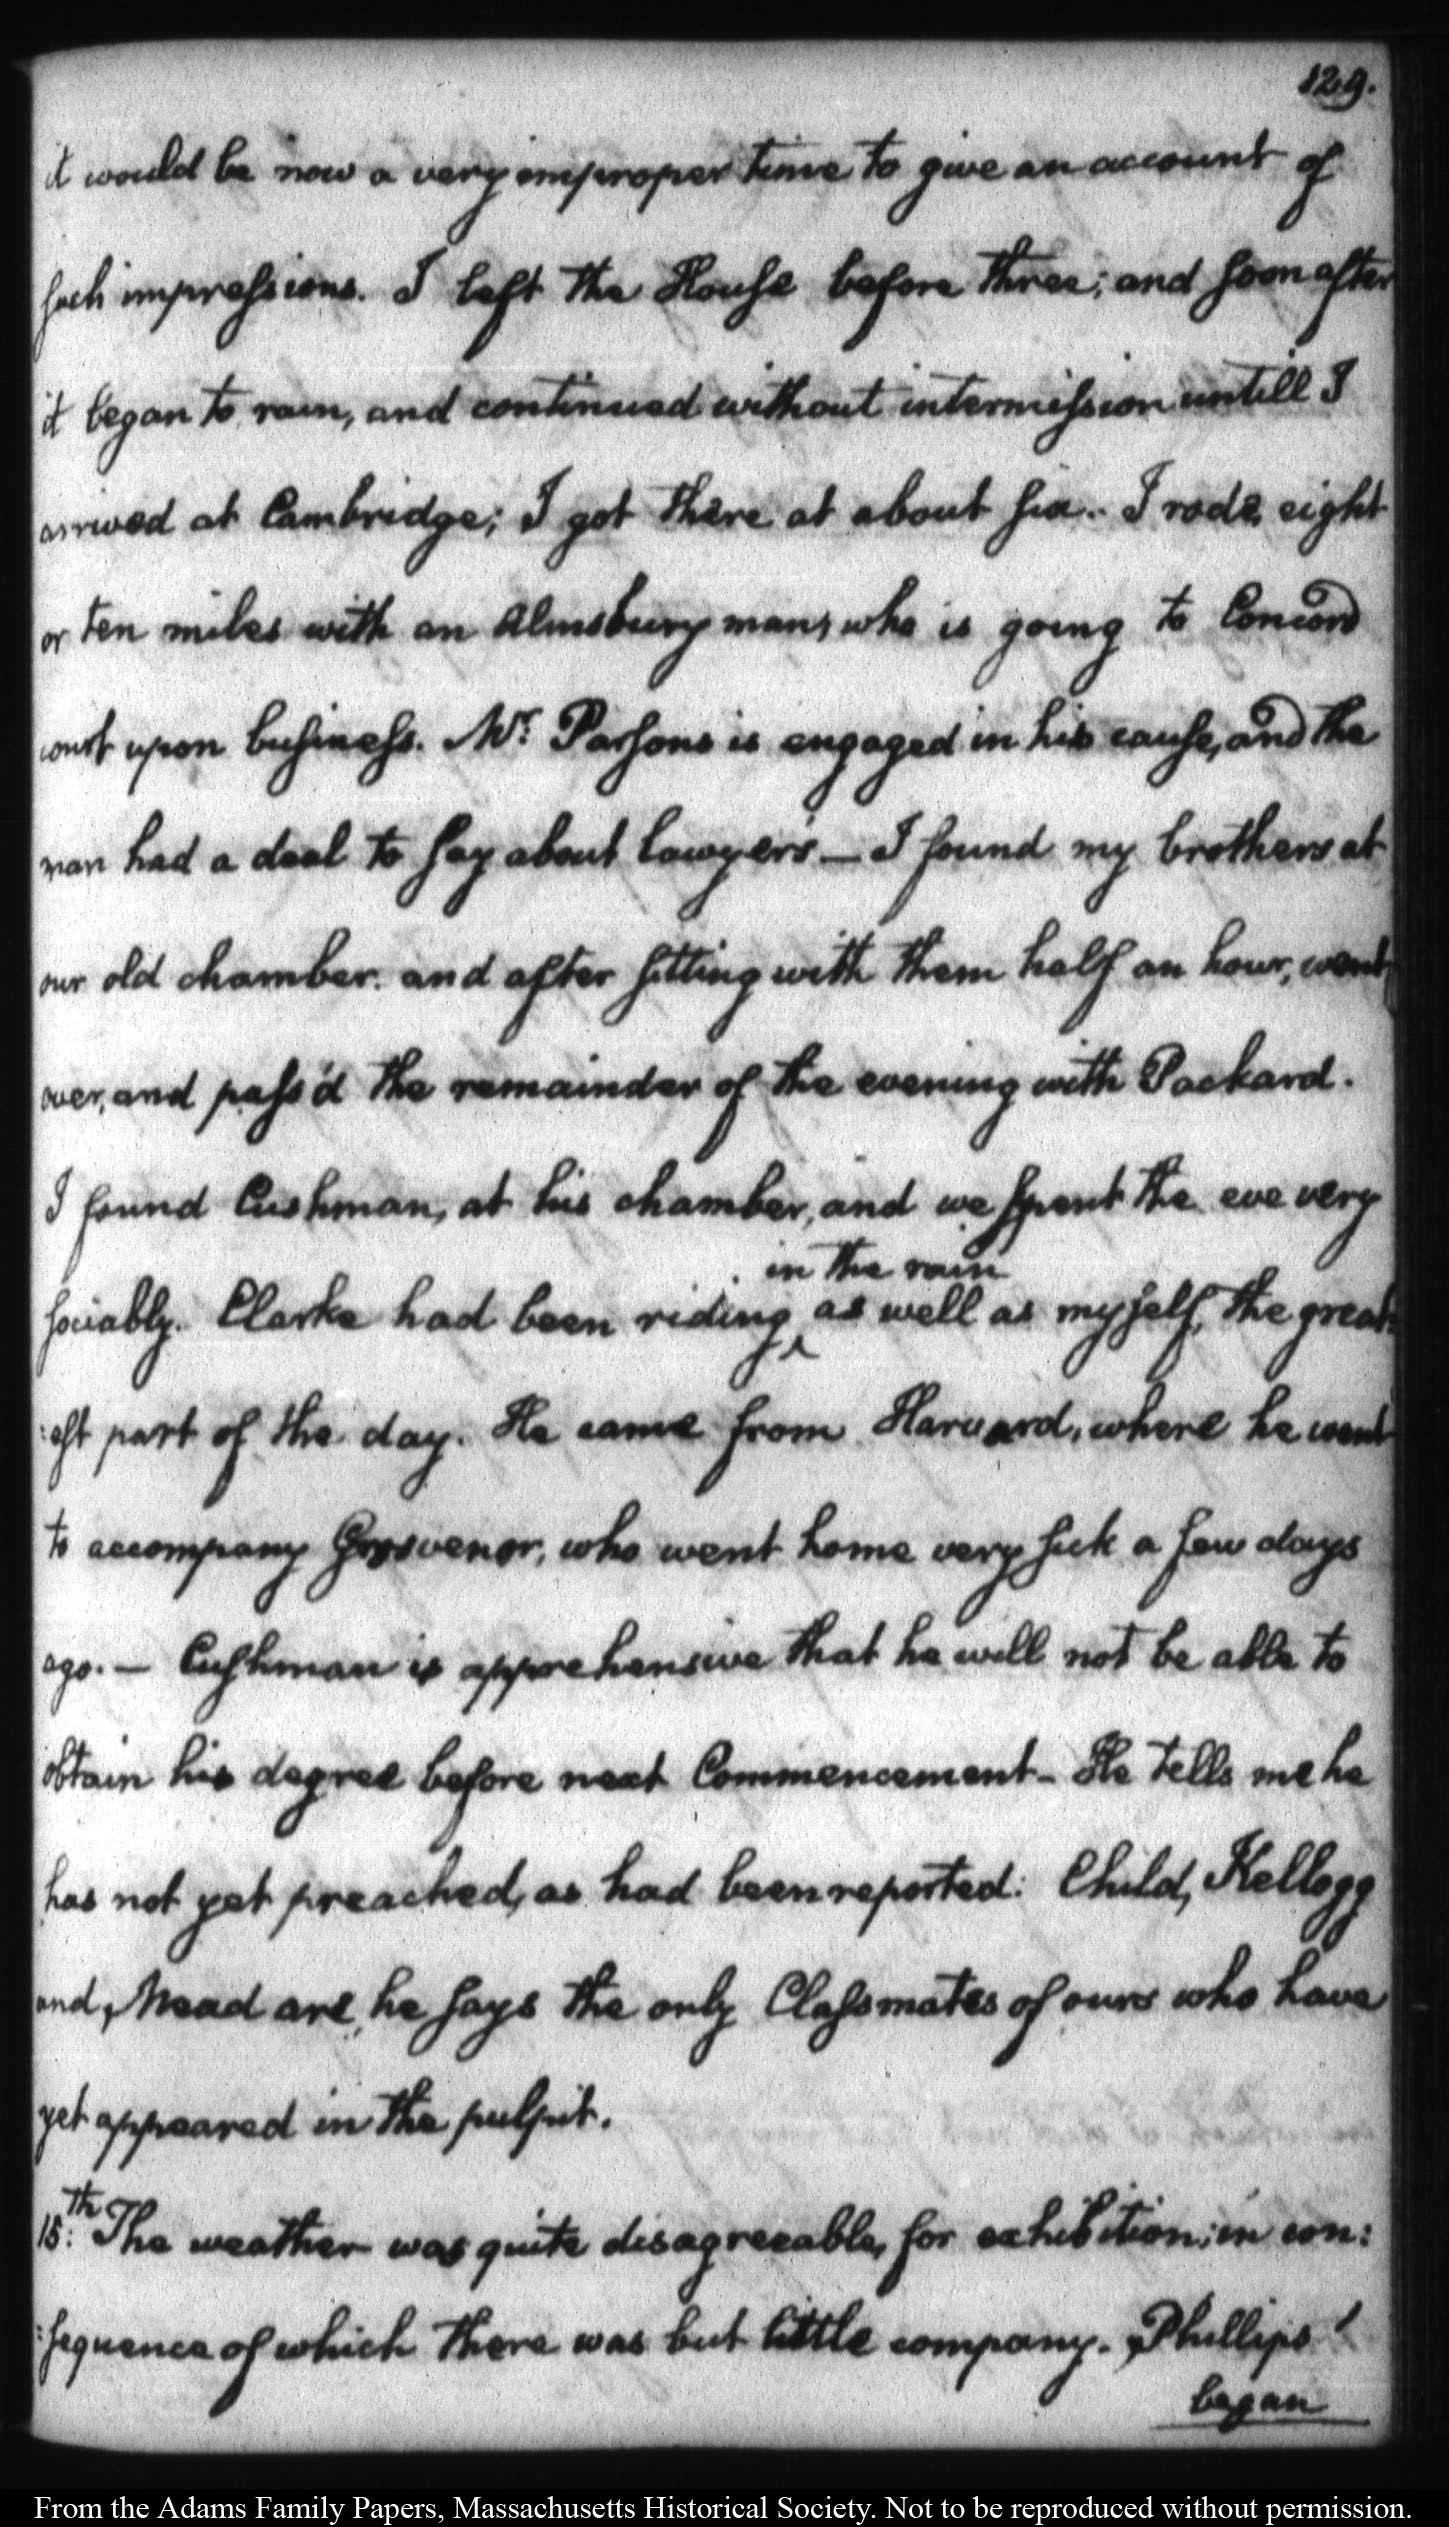 129.
it would be now a very improper time to give an account of
such impressions. I left the House before three; and soon after
it began to rain, and continued without intermission untill I
arrived at Cambridge; I got there at about six. I rode eight
or ten miles with an Almsbury man, who is going to Concord
court upon business. Mr. Parsons is engaged in his cause, and the
man had a deal to say about lawyers — I found my brothers at
our old chamber. and after sitting with them half an hour, went
over, and pass'd the remainder of the evening with Packard.
I found Cushman, at his chamber, and we spent the eve very
in the rain
sociably. Clarke had been riding ^ as well as myself, the great:
:est part of the day. He came from Harvard, where he went
to accompany Grosvenor, who went home very sick a few days
ago. — Cushman is apprehensive that he will not be able to
obtain his degree before next Commencement - He tells me he
has not yet preached, as had been reported. Child, Kellogg
and, Mead are, he says the only Classmates of ours who have
yet appeared in the pulpit.
15:th The weather was quite disagreeable, for exhibition; in con:
:sequence of which there was but little company. Phillips
began
From the Adams Family Papers, Massachusetts Historical Society. Not to be reproduced without permission.